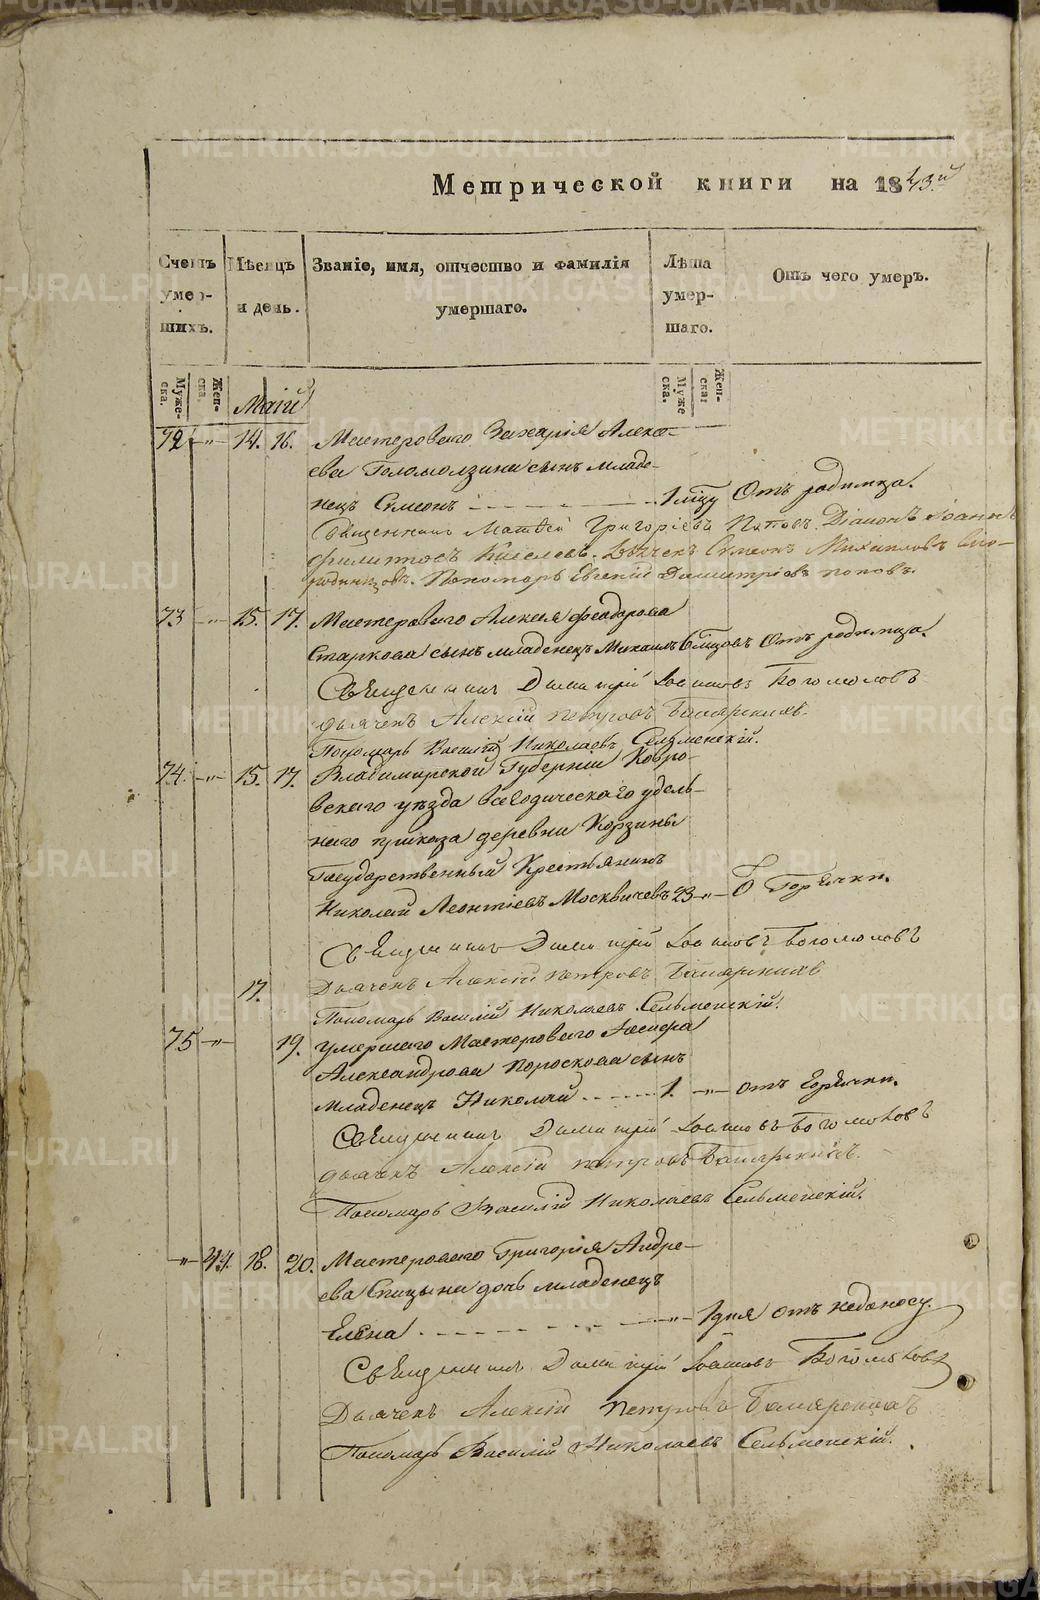 Метрической книги на 1843.й
Счетъ умершихъ.
Мѣсяцъ и день.
Званіе, имя, отчество и фамилія умершаго.
Лѣта умершаго.
Отъ чего умеръ.
Мужеска.
Женска.
Маій
Мужеска.
Женска:
72 -"- 14. 16. Мастероваго Захарія Алексѣ-
ева Голомолзина сынъ младе-
нецъ Симеонъ - - - - - 1 мцу Отъ родимца.
Священникъ Матѳей Григоріевъ Поповъ. Діаконъ Іоаннъ
Филитовъ Киселевъ. Дьячекъ Симеонъ Михаиловъ
Пономарь Евгеній Димитріевъ Поповъ.
73 -"- 15. 17. Мастероваго Алексѣя Феодорова
Старкова сынъ младенецъ Михаилъ 6 мцовъ Отъ родимца.
Священникъ Димитрій Іоанновъ Богомоловъ
Дьячекъ Алексій Петровъ
Пономарь Василій Николаевъ Сельменскій.
74. -"- 15. 17. Владимирской Губерніи Ковро-
вскаго уѣзда Всегодическаго удѣль-
наго приказа деревни Корзины
Государственный Крестьянинъ
Николай Леонтіевъ Москвичевъ 23 -"- Горячки.
Священникъ Димитрій Іоанновъ Богомоловъ
Дьячекъ Алексій Петровъ
17.
Пономарь Василій Николаевъ Сельменскій.
75 -"- 19. Умершаго Мастероваго Іосифа
Александрова Пороскова сынъ
Младенецъ Николай - - - - 1. -"- отъ Горячки.
Священникъ Димитрій Іоанновъ Богомоловъ
Дьячекъ Алексій Петровъ
Пономарь Василій Николаевъ Сельменскій.
-"- 44. 18. 20. Мастероваго Григорія Андре-
ева Спицына дочь младенецъ
Елена - - - - - -"- 1 дня отъ недоносу.
Священникъ Димитрій Іоанновъ Богомоловъ
Дьячекъ Алексій Петровъ
Пономарь Василій Николаевъ Сельменскій.
METRIKI.GASO-URAL.RU